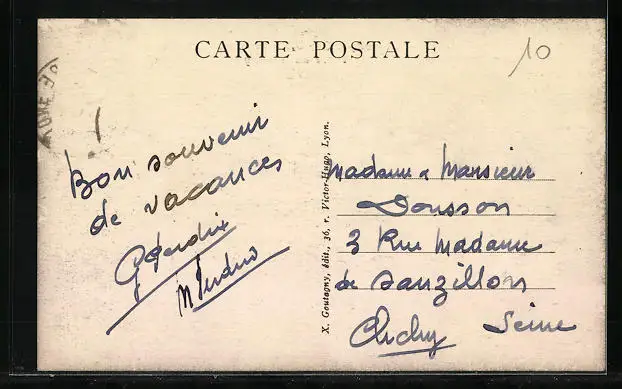 CARTE POSTALE
10
Bon souvenir
de vacances
G Perdrix
M Perdrix
X. Goutagny, édit., 36, r. Victor-Hugo, Lyon.
Madame & Monsieur
Dousson
3 Rue Madame
de Sanzillon
Clichy Seine